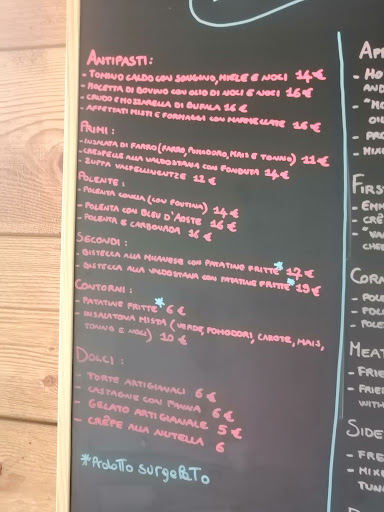 ANTIPASTI:
- TOMINO CALDO CON SONGINO, MIELE E NOCI 14 €
- MOCETTA DI BOVINO CON OLIO DI NOCI E NOCI 16 €
- CRUDO E MOZZARELLA DI BUFALA 16 €
- AFFETTATI MISTI E FORMAGGI CON MARMELLATE 16 €
PRIMI:
- INSALATA DI FARRO (FARRO, POMODORO, MAIS E TONNO) 11 €
- CRESPELLE ALLA VALDOSTANA CON FONDUTA 14 €
- ZUPPA VALPELLINENTZE 12 €
POLENTE:
- POLENTA CONCIA (CON FONTINA) 14 €
- POLENTA CON BLEU D'AOSTE 16 €
- POLENTA E CARBONADA 16 €
SECONDI:
- BISTECCA ALLA MILANESE CON PATATINE FRITTE* 17 €
- BISTECCA ALLA VALDOSTANA CON PATATINE FRITTE* 19 €
CONTORNI:
- PATATINE FRITTE* 6 €
- INSALATONA MISTA (VERDE, POMODORI, CAROTE, MAIS,
TONNO E NOCI) 10 €
DOLCI:
- TORTE ARTIGIANALI 6 €
- CASTAGNE CON PANNA 6 €
- GELATO ARTIGIANALE 5 €
- CRÊPE ALLA NUTELLA 6
*Prodotto surgelato
AP
- MO
AND
- "M
OIL
- PR
- MIX
FIRS
- EMM
- CRÊ
- "VA
CHE
COR
- POL
- POL
- POL
MEAT
- FRIE
- FRIE
WITH
SIDE
- FRE
- MIXE
TUN